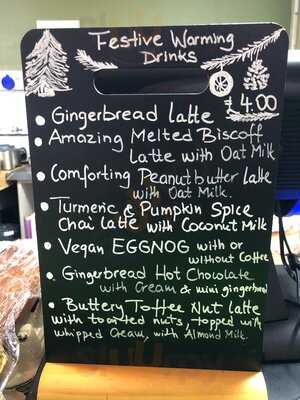 Festive Warming
Drinks
£4.00
• Gingerbread latte
• Amazing Melted Biscoff
latte with Oat Milk
• Comforting Peanut butter latte
with Oat Milk.
• Turmeric & Pumpkin Spice
Chai latte with Coconut Milk
• Vegan EGGNOG with or
without Coffee
• Gingerbread Hot Chocolate
with Cream & mini gingerbread
• Buttery Toffee Nut latte
with toasted nuts, topped with
whipped Cream, with Almond Milk.